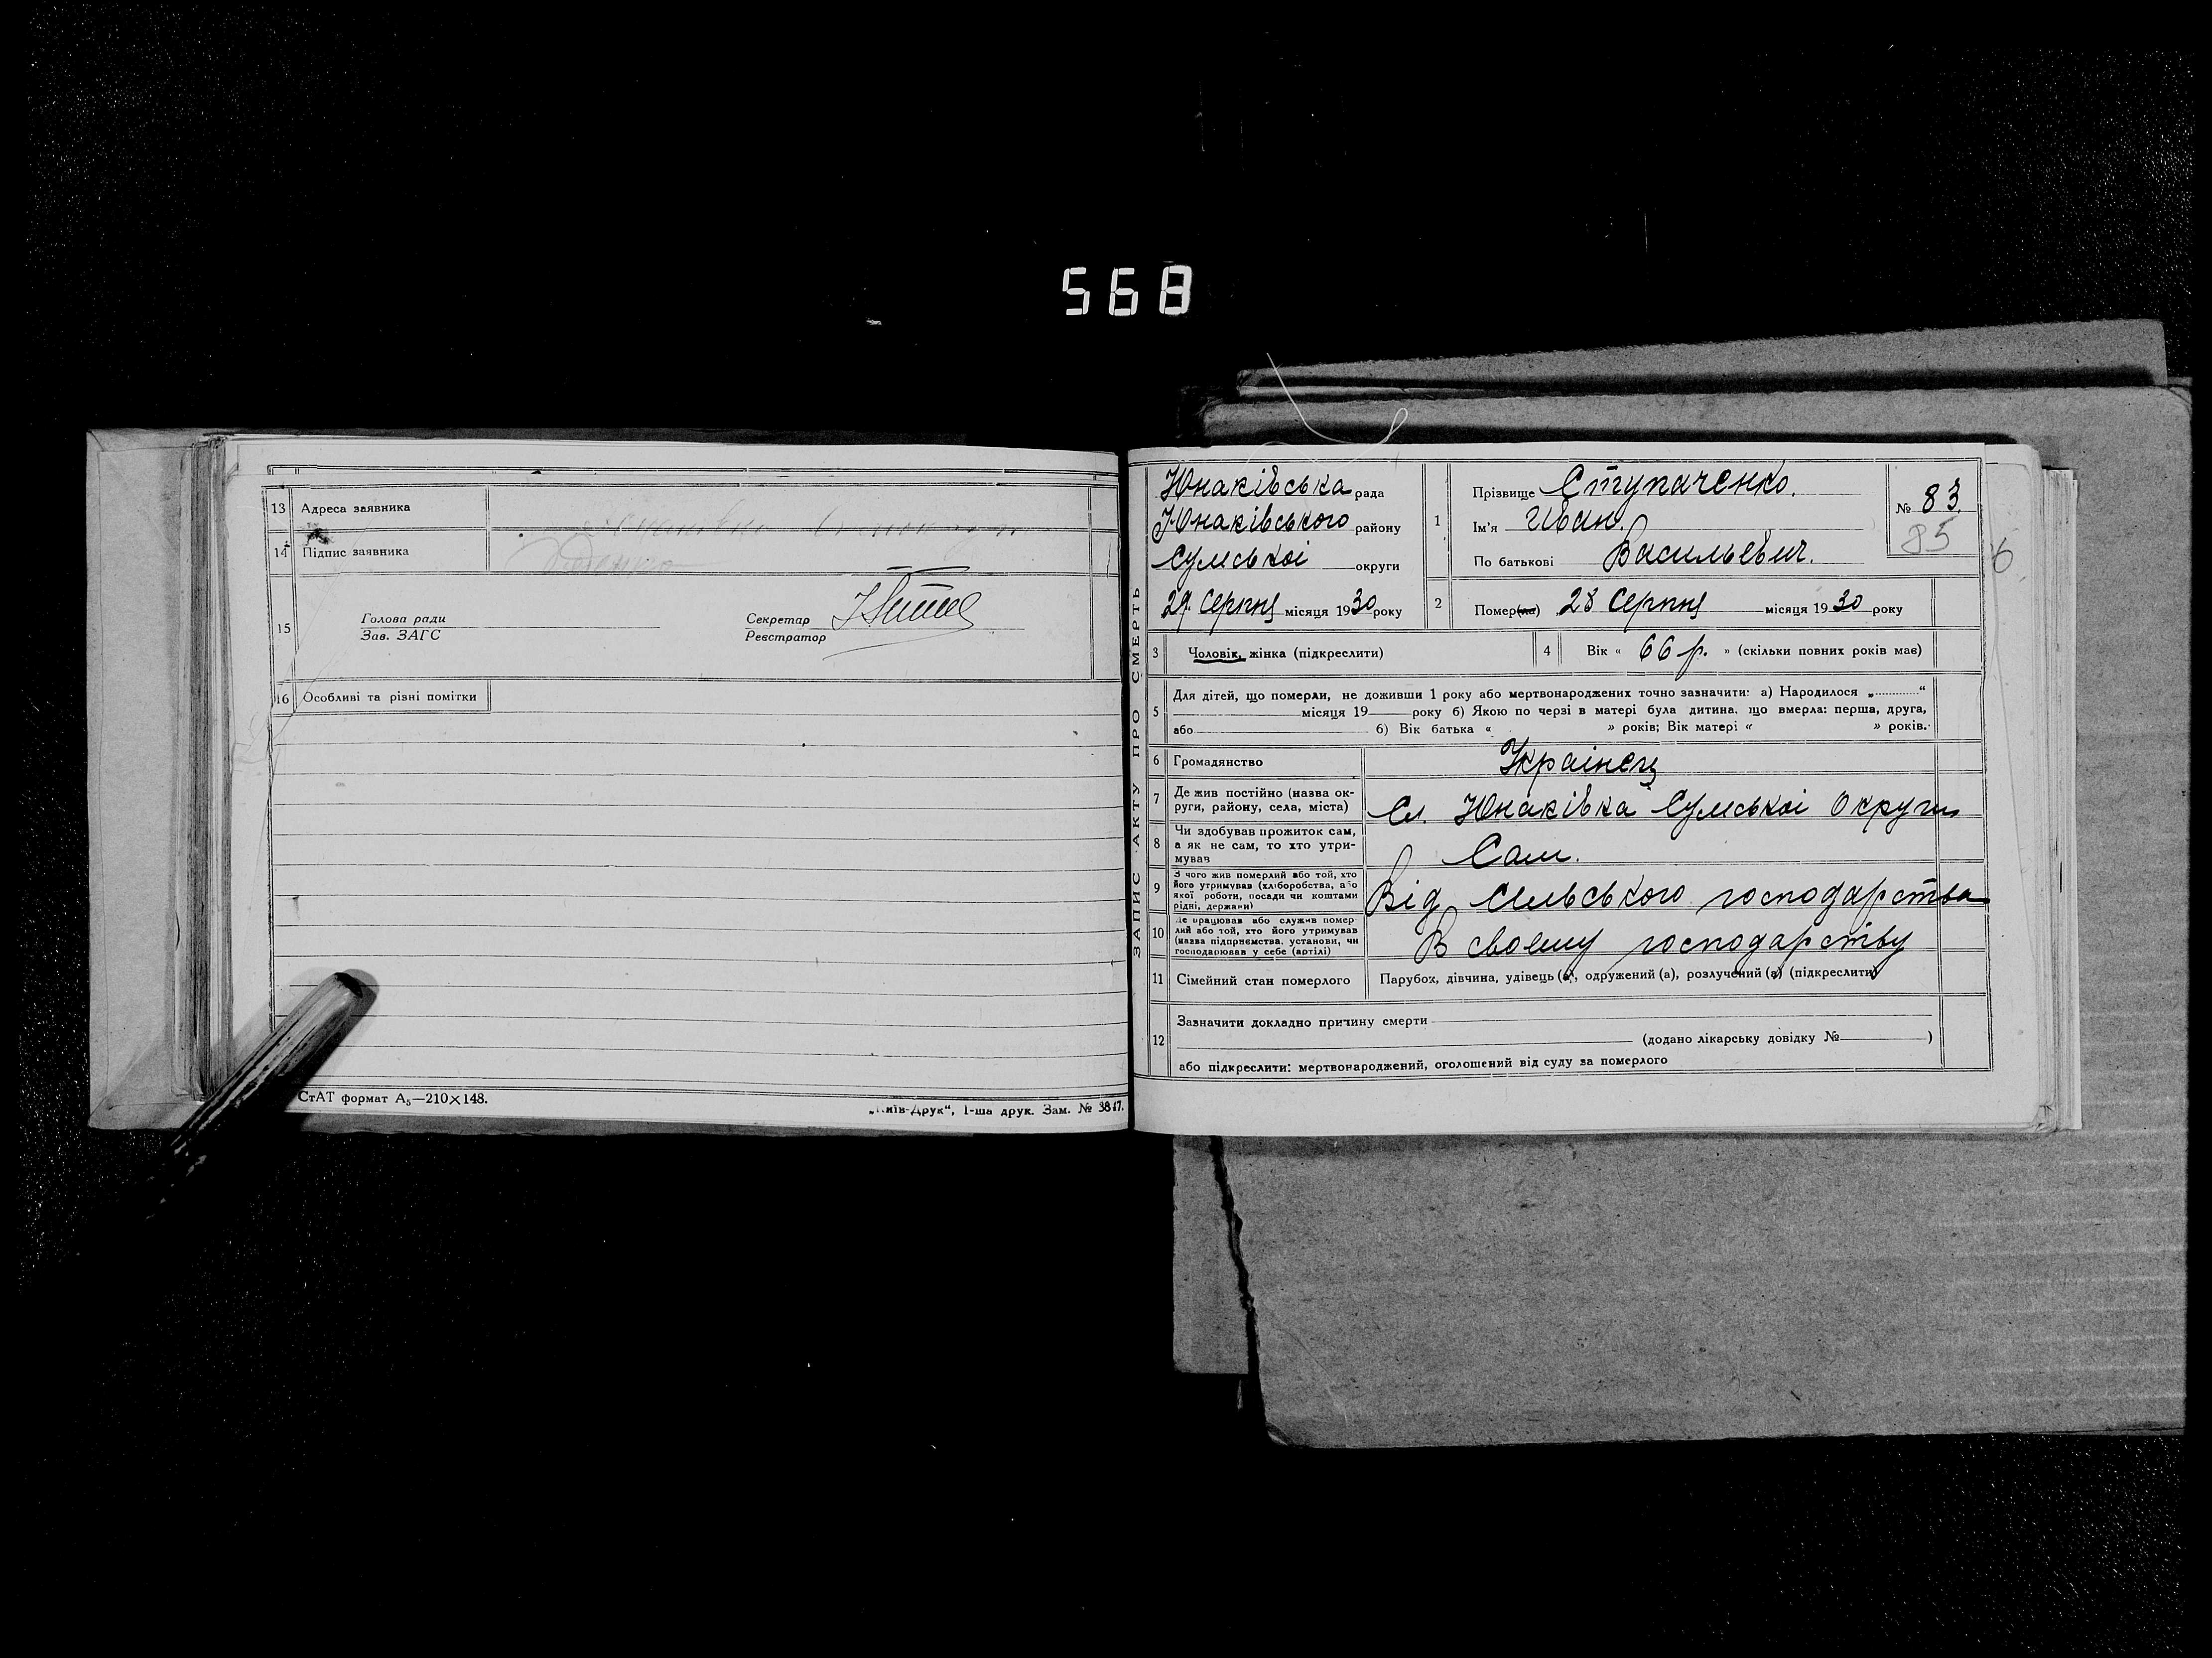 568
13 Адреса заявника
14 Підпис заявника
15
Голова ради
Зав. ЗАГС
Секретар
Реєстратор
16 Особливі та різні помітки
СтАТ формат А₅—210×148.
„Київ-Друк“, 1-ша друк. Зам. № 3847.
ЗАПИС АКТУ ПРО СМЕРТЬ
Юнаківська рада
Юнаківського району
Сумськоі округи
29 Серпня місяця 1930 року
1 Прізвище Ступаченко.
Ім'я Иван.
По батькові Васильевич.
№ 83.
85
2 Помер(ла) 28 Серпня місяця 1930 року
3 Чоловік, жінка (підкреслити)
4 Вік « 66 р. » (скільки повних років має)
5 Для дітей, що померли, не доживши 1 року або мертвонароджених точно зазначити: а) Народилося „............“
місяця 19 року б) Якою по черзі в матері була дитина, що вмерла: перша, друга,
або б) Вік батька « » років; Вік матері « » років.
6 Громадянство Украінец
7 Де жив постійно (назва ок-
руги, району, села, міста) Сл. Юнаківка Сумськоі Округи
8 Чи здобував прожиток сам,
а як не сам, то хто утри-
мував Сам.
9 З чого жив померлий або той, хто
його утримував (хліборобства, або
якої роботи, посади чи коштами
рідні, держави) Від сільського господарства
10 Де працював або служив помер
лий або той, хто його утримував
(назва підприємства, установи, чи
господарював у себе (артілі) В своєму господарству
11 Сімейний стан померлого Парубок, дівчина, удівець (а), одружений (а), розлучений (а) (підкреслити)
12 Зазначити докладно причину смерти
(додано лікарську довідку № )
або підкреслити: мертвонароджений, оголошений від суду за померлого